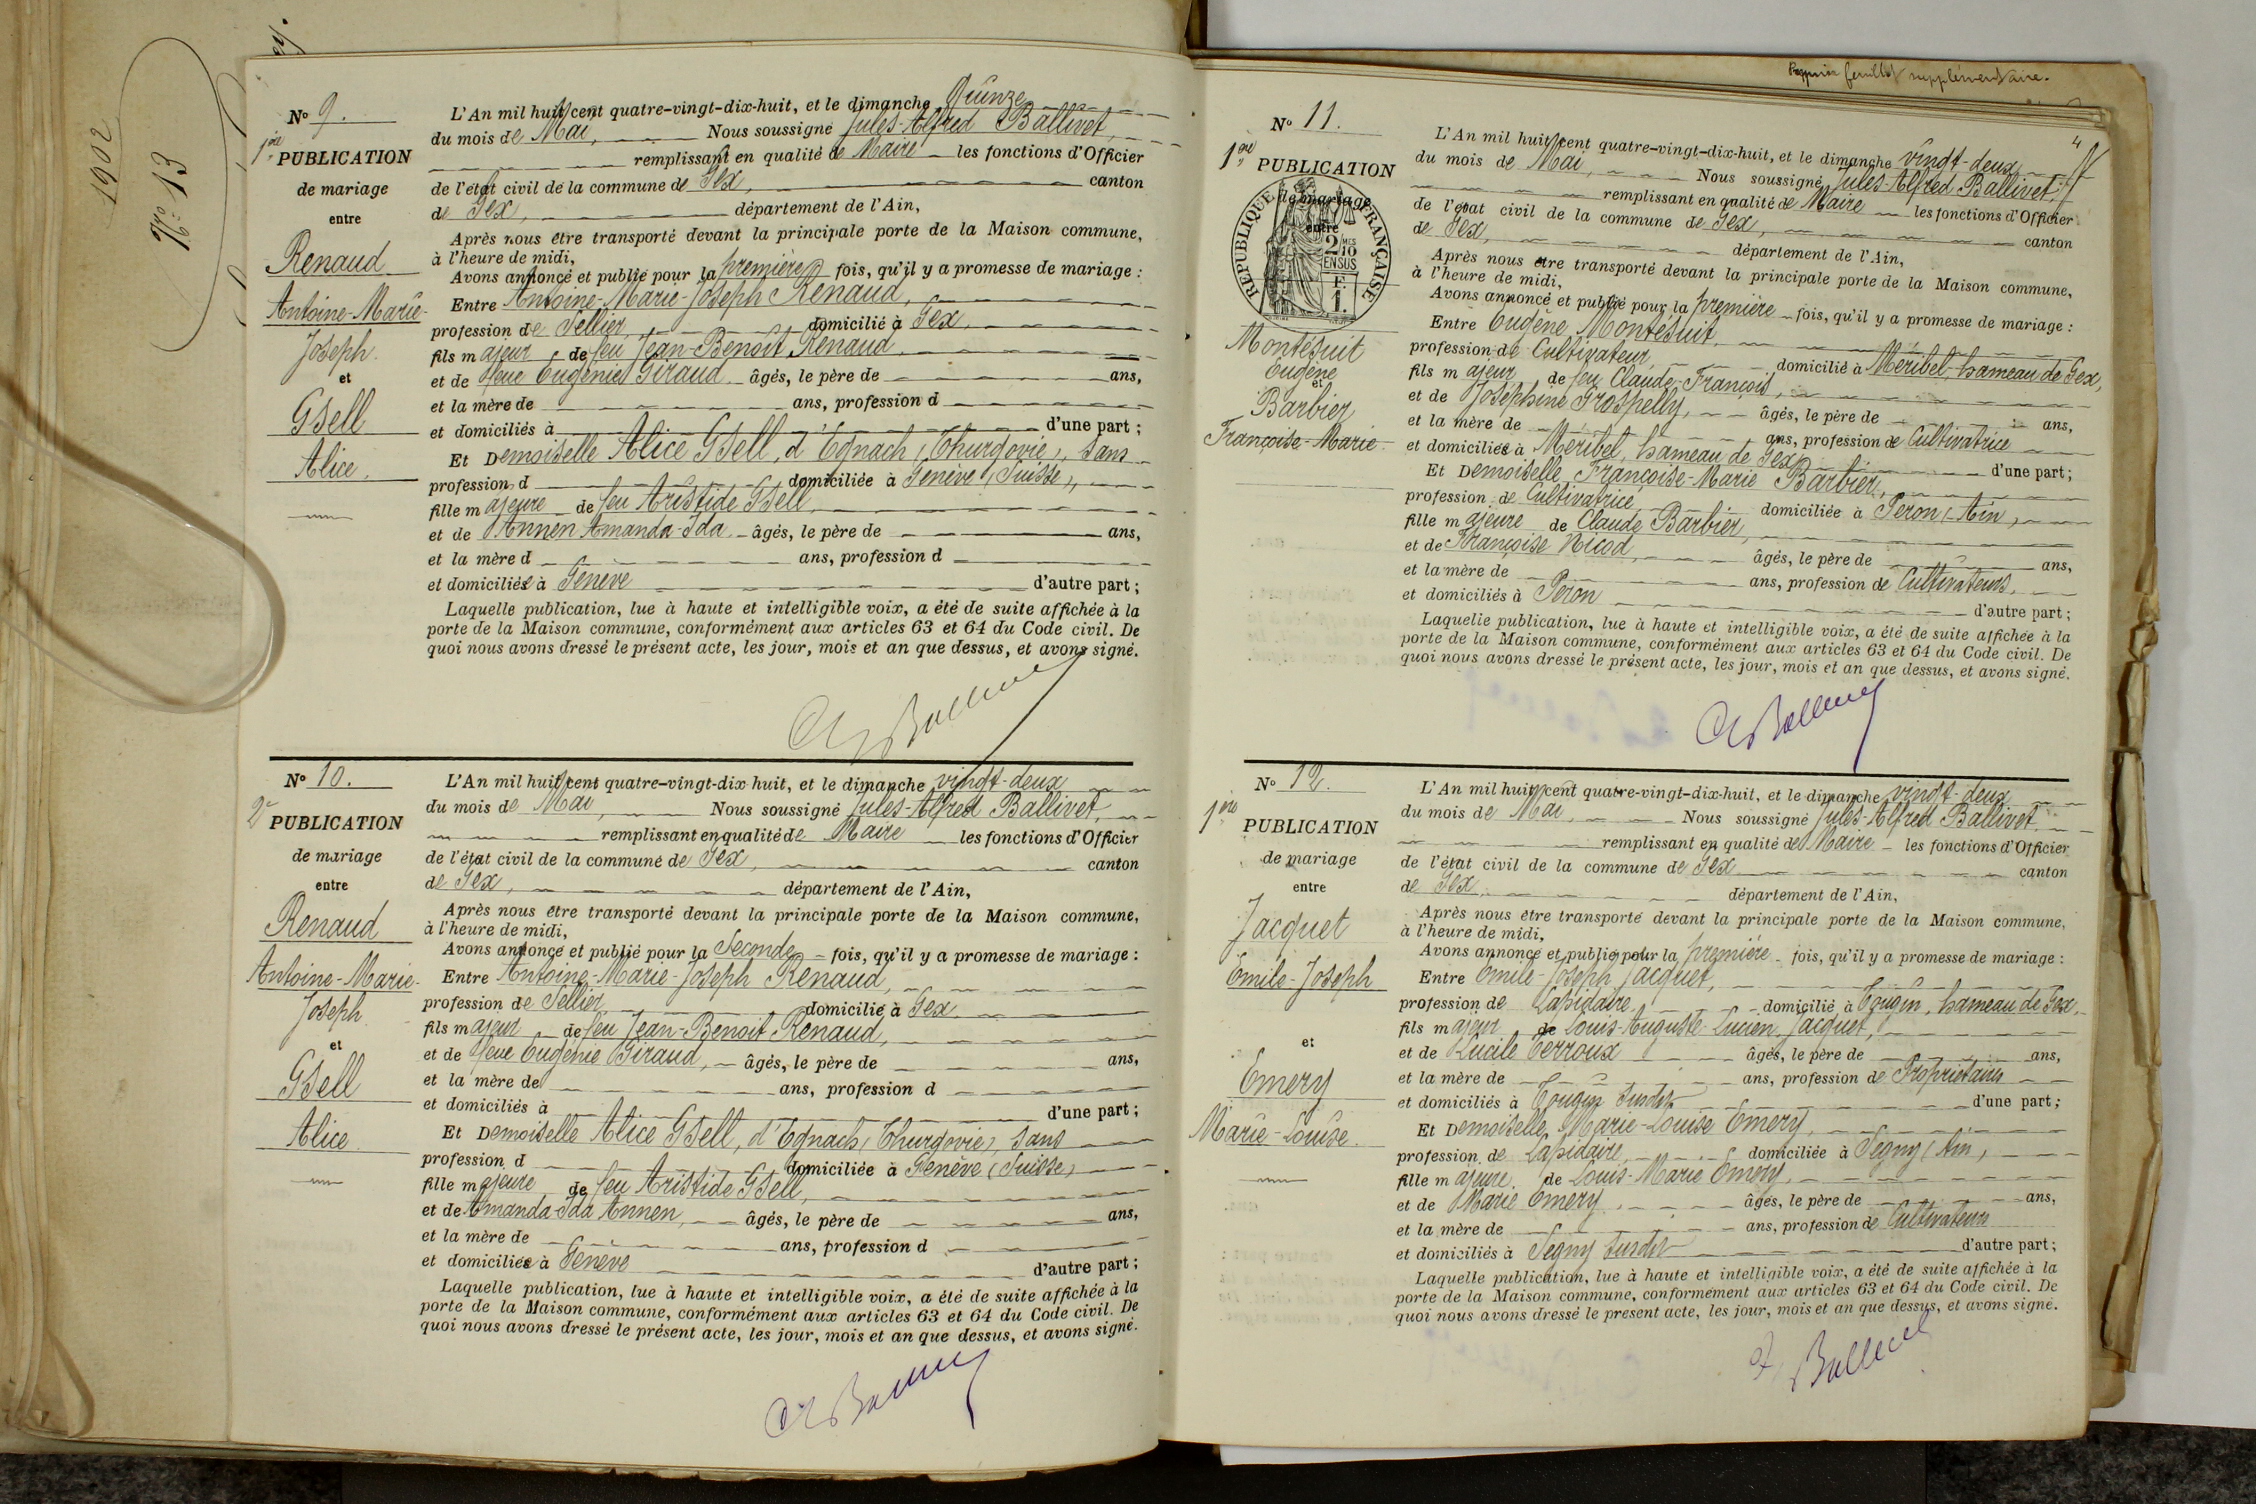 1902
No 13
Nº 9.
1ère PUBLICATION
de mariage
entre
Renaud
Antoine-Marie-
Joseph.
et
Gsell
Alice.
L'An mil huit cent quatre-vingt-dix-huit, et le dimanche Quinze
du mois de Mai, Nous soussigné Jules-Alfred Ballivet,
remplissant en qualité de Maire les fonctions d'Officier
de l'état civil de la commune de Gex, canton
de Gex, département de l'Ain,
Après nous être transporté devant la principale porte de la Maison commune,
à l'heure de midi,
Avons annoncé et publié pour la première fois, qu'il y a promesse de mariage :
Entre Antoine-Marie-Joseph Renaud,
profession de Sellier domicilié à Gex,
fils majeur de feu Jean-Benoit Renaud
et de feue Eugénie Giraud, âgés, le père de ans,
et la mère de ans, profession d
et domiciliés à d'une part ;
Et Demoiselle Alice Gsell, d'Egnach (Thurgovie), sans
profession d domiciliée à Genève (Suisse),
fille majeure de feu Aristide Gsell,
et de Annen Amanda-Ida âgés, le père de ans,
et la mère d ans, profession d
et domiciliés à Genève d'autre part ;
Laquelle publication, lue à haute et intelligible voix, a été de suite affichée à la
porte de la Maison commune, conformément aux articles 63 et 64 du Code civil. De
quoi nous avons dressé le présent acte, les jour, mois et an que dessus, et avons signé.
Nº 10.
2e PUBLICATION
de mariage
entre
Renaud
Antoine-Marie-
Joseph
et
Gsell
Alice
L'An mil huit cent quatre-vingt-dix-huit, et le dimanche vingt-deux
du mois de Mai, Nous soussigné Jules-Alfred Ballivet,
remplissant en qualité de Maire les fonctions d'Officier
de l'état civil de la commune de Gex, canton
de Gex, département de l'Ain,
Après nous être transporté devant la principale porte de la Maison commune,
à l'heure de midi,
Avons annoncé et publié pour la Seconde fois, qu'il y a promesse de mariage :
Entre Antoine-Marie-Joseph Renaud,
profession de Sellier domicilié à Gex
fils majeur de feu Jean-Benoit Renaud,
et de feue Eugénie Giraud, âgés, le père de ans,
et la mère de ans, profession d
et domiciliés à d'une part ;
Et Demoiselle Alice Gsell, d'Egnach (Thurgovie), sans
profession d domiciliée à Genève (Suisse)
fille majeure de feu Aristide Gsell,
et de Amanda-Ida Annen, âgés, le père de ans,
et la mère de ans, profession d
et domiciliés à Genève d'autre part ;
Laquelle publication, lue à haute et intelligible voix, a été de suite affichée à la
porte de la Maison commune, conformément aux articles 63 et 64 du Code civil. De
quoi nous avons dressé le présent acte, les jour, mois et an que dessus, et avons signé.
feuillet supplémentaire.
Nº 11.
1ère PUBLICATION
de mariage
entre
RÉPUBLIQUE FRANÇAISE
2/10 MES
EN SUS
F.
1.
Montésuit
Eugène
et
Barbier
Françoise-Marie
L'An mil huit cent quatre-vingt-dix-huit, et le dimanche vingt-deux
du mois de Mai, Nous soussigné Jules-Alfred Ballivet,
remplissant en qualité de Maire les fonctions d'Officier
de l'état civil de la commune de Gex, canton
de Gex, département de l'Ain,
Après nous être transporté devant la principale porte de la Maison commune,
à l'heure de midi,
Avons annoncé et publié pour la première fois, qu'il y a promesse de mariage :
Entre Eugène Montésuit,
profession de Cultivateur domicilié à Meribel, hameau de Gex,
fils majeur de feu Claude-François,
et de Joséphine Grospelly, âgés, le père de ans,
et la mère de ans, profession de Cultivatrice
et domiciliés à Meribel, hameau de Gex d'une part ;
Et Demoiselle Françoise-Marie Barbier,
profession de Cultivatrice domiciliée à Péron (Ain,
fille majeure de Claude Barbier,
et de Françoise Nicod, âgés, le père de ans,
et la mère de ans, profession de Cultivateurs,
et domiciliés à Péron d'autre part ;
Laquelle publication, lue à haute et intelligible voix, a été de suite affichée à la
porte de la Maison commune, conformément aux articles 63 et 64 du Code civil. De
quoi nous avons dressé le présent acte, les jour, mois et an que dessus, et avons signé.
Nº 12.
1ère PUBLICATION
de mariage
entre
Jacquet
Emile-Joseph
et
Emery
Marie-Louise.
L'An mil huit cent quatre-vingt-dix-huit, et le dimanche vingt-deux
du mois de Mai, Nous soussigné Jules-Alfred Ballivet
remplissant en qualité de Maire les fonctions d'Officier
de l'état civil de la commune de Gex canton
de Gex, département de l'Ain,
Après nous être transporté devant la principale porte de la Maison commune,
à l'heure de midi,
Avons annoncé et publié pour la première fois, qu'il y a promesse de mariage :
Entre Emile-Joseph Jacquet,
profession de Lapidaire domicilié à Tougin, hameau de Gex,
fils majeur de Louis-Auguste-Lucien Jacquet,
et de Lucile Terroux âgés, le père de ans,
et la mère de ans, profession de Propriétaires
et domiciliés à Tougin susdit d'une part ;
Et Demoiselle Marie-Louise Emery,
profession de Lapidaire, domiciliée à Segny (Ain,
fille majeure de Louis-Marie Emery,
et de Marie Emery âgés, le père de ans,
et la mère de ans, profession de Cultivateurs
et domiciliés à Segny susdit d'autre part ;
Laquelle publication, lue à haute et intelligible voix, a été de suite affichée à la
porte de la Maison commune, conformément aux articles 63 et 64 du Code civil. De
quoi nous avons dressé le présent acte, les jour, mois et an que dessus, et avons signé.